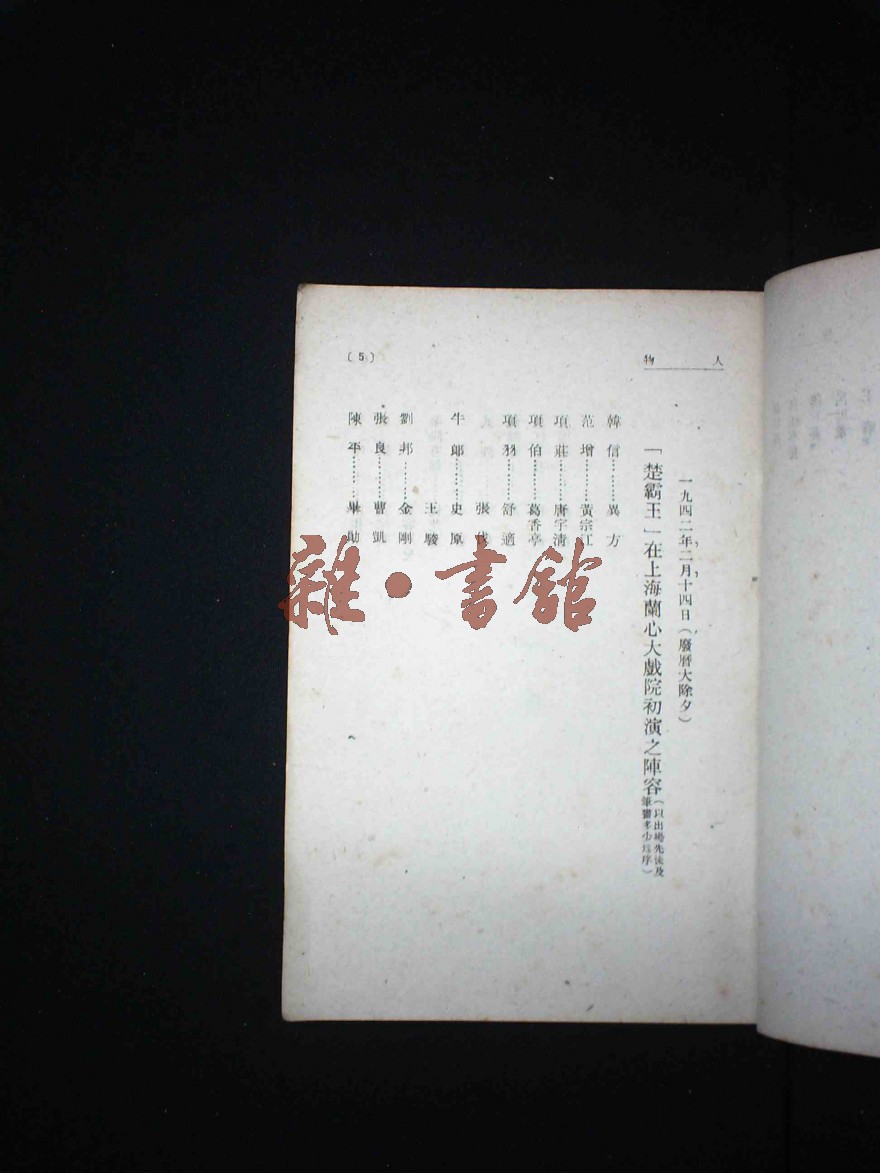 人物
一九四二年二月十四日（廢曆大除夕）
「楚霸王」在上海蘭心大戲院初演之陣容（以出場先後及
筆劃多少爲序）
韓信………異方
范增………黃宗江
項莊………唐宇淸
項伯………葛香亭
項羽………舒適
張伐
牛郎………史原
王駿
劉邦………金剛
張良………曹凱
陳平………畢助
〔5〕
雜·書館